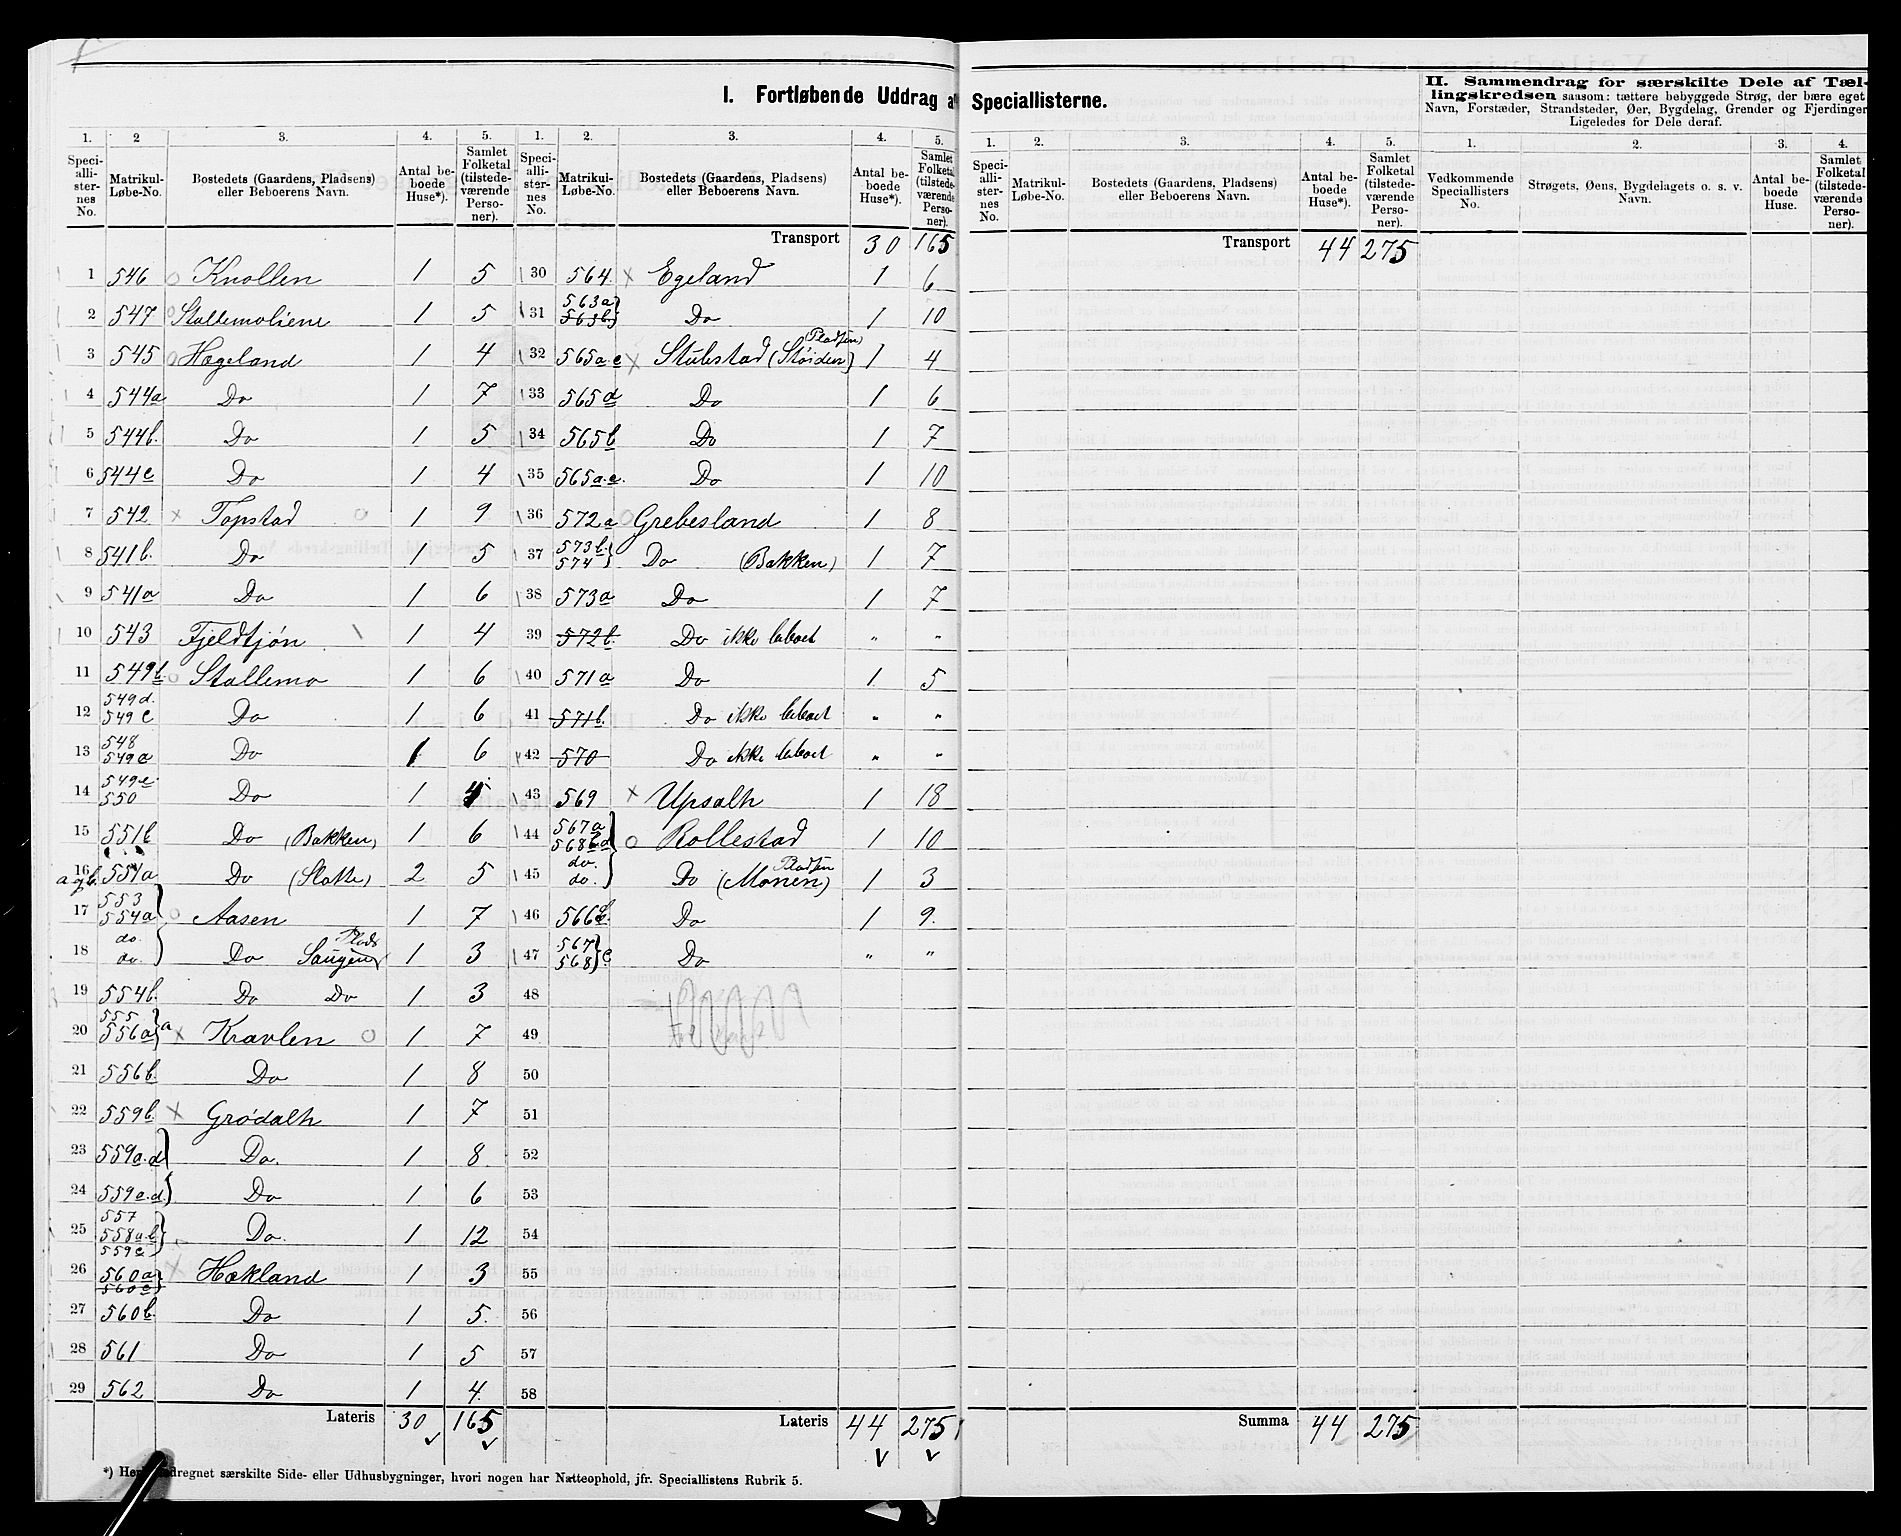 I. Fortløbende Uddrag af Speciallisterne.
II. Sammendrag for særskilte Dele af Tællingskredsen saasom: tættere bebyggede Strøg, der bære eget
Navn, Forstæder, Strandsteder, Øer, Bygdelag, Grender og Fjerdinger
Ligeledes for Dele deraf.
1. 2 3. 4. 5. 1. 2. 3. 4. 5.
Speciallisternes No. Matrikul-Løbe-No. Bostedets (Gaardens, Pladsens) eller Beboerens Navn. Antal beboede Huse*). Samlet Folketal (tilstedeværende Personer). Speciallisternes No. Matrikul-Løbe-No. Bostedets (Gaardens, Pladsens) eller Beboerens Navn. Antal beboede Huse*). Samlet Folketal (tilstedeværende Personer).
Transport 30 165
1 546 Knollen 1 5
2 547 Stallemoliene 1 5
3 545 Hægeland 1 4
4 544a Do 1 7
5 544b. Do 1 5
6 544c Do 1 4
7 542 x Topstad o 1 9
8 541b. Do 1 5
9 541a Do 1 6
10 543 Fjeldtjøn 1 4
11 549b. o Stallemo 1 6
12 549d. 549c Do 1 6
13 548 549a Do 1 6
14 549e. 550 Do 1 4
15 551b Do (Bakken) 1 6
16 a og b. 551a Do (Slotte) 2 5
17 553 554a o Aasen 1 7
18 do. do. Do Plads Saugen 1 3
19 554b. Do Do 1 3
20 555 556a a x Kravlen o 1 7
21 556b. Do 1 8
22 559b. x Grødalh 1 7
23 559a.d Do. 1 8
24 559c.d. Do 1 6
25 557 558a.b 559e Do. 1 12
26 560a 560c x Hækland 1 3
27 560b. Do 1 5.
28 561 Do 1 5
29 562 Do 1 4.
Lateris 30 165
30 564. x Egeland 1 6
31 563a 563b. Do 1 10
32 565a.c x Stubstad (Støiden) Pladsen 1 4
33 565d Do 1 6
34 565b Do 1 7
35 565a.e. Do 1 10
36 572a o Grebesland 1 8
37 573b. 574 Do (Bakken) 1 7
38 573a Do 1 7
39 572b. Do ikke beboet " "
40 571a Do 1 5
41 571b. Do ikke beboet " "
42 570 Do ikke beboet " "
43 569 x Upsalh 1 18
44 567a 568b.d o Rollestad 1 10
45 do. do. Do (Monen) Pladsen 1 3
46 566b. Do 1 9.
47 567 568 c Do " "
48
49
50
51
52
53
54
55
56
57
58
Lateris 44 275
1. 2. 3. 4. 5. 1. 2. 3. 4.
Speciallisternes No. Matrikul-Løbe-No. Bostedets (Gaardens, Pladsens) eller Beboerens Navn. Antal beboede Huse*). Samlet Folketal (tilstedeværende Personer). Vedkommende Speciallisters No. Strøgets, Øens, Bygdelagets o. s. v. Navn. Antal beboede Huse. Samlet Folketal (tilstedeværende Personer).
Transport 44 275
Summa 44 275
særskilte Side- eller Udhusbygninger, hvori nogen har Natteophold, jfr. Speciallistens Rubrik 5.